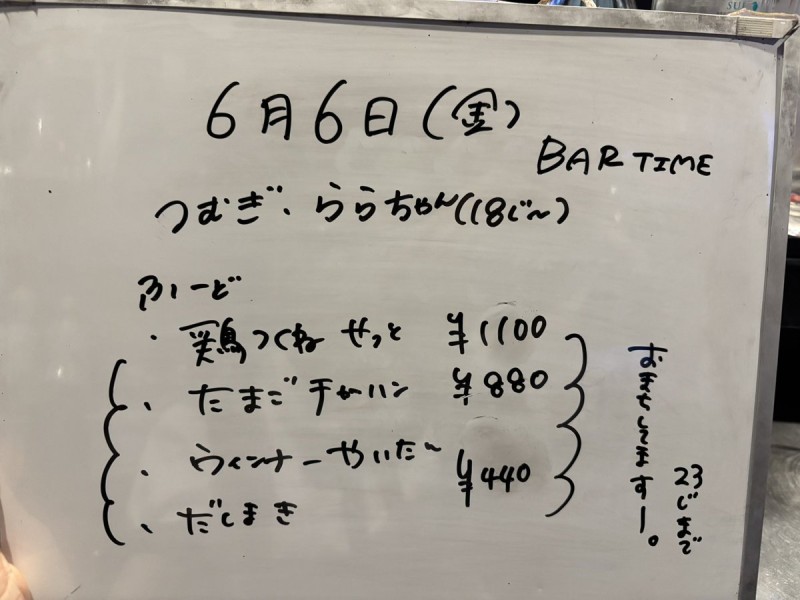 6月6日(金)
BAR TIME
つむぎ、ららちゃん(18じ〜)
ふーど
・鶏つくねせっと ¥1100
・たまごチャーハン ¥880
・ウィンナーやいた〜 ¥440
・だしまき
おまちしてますー。
23じまで